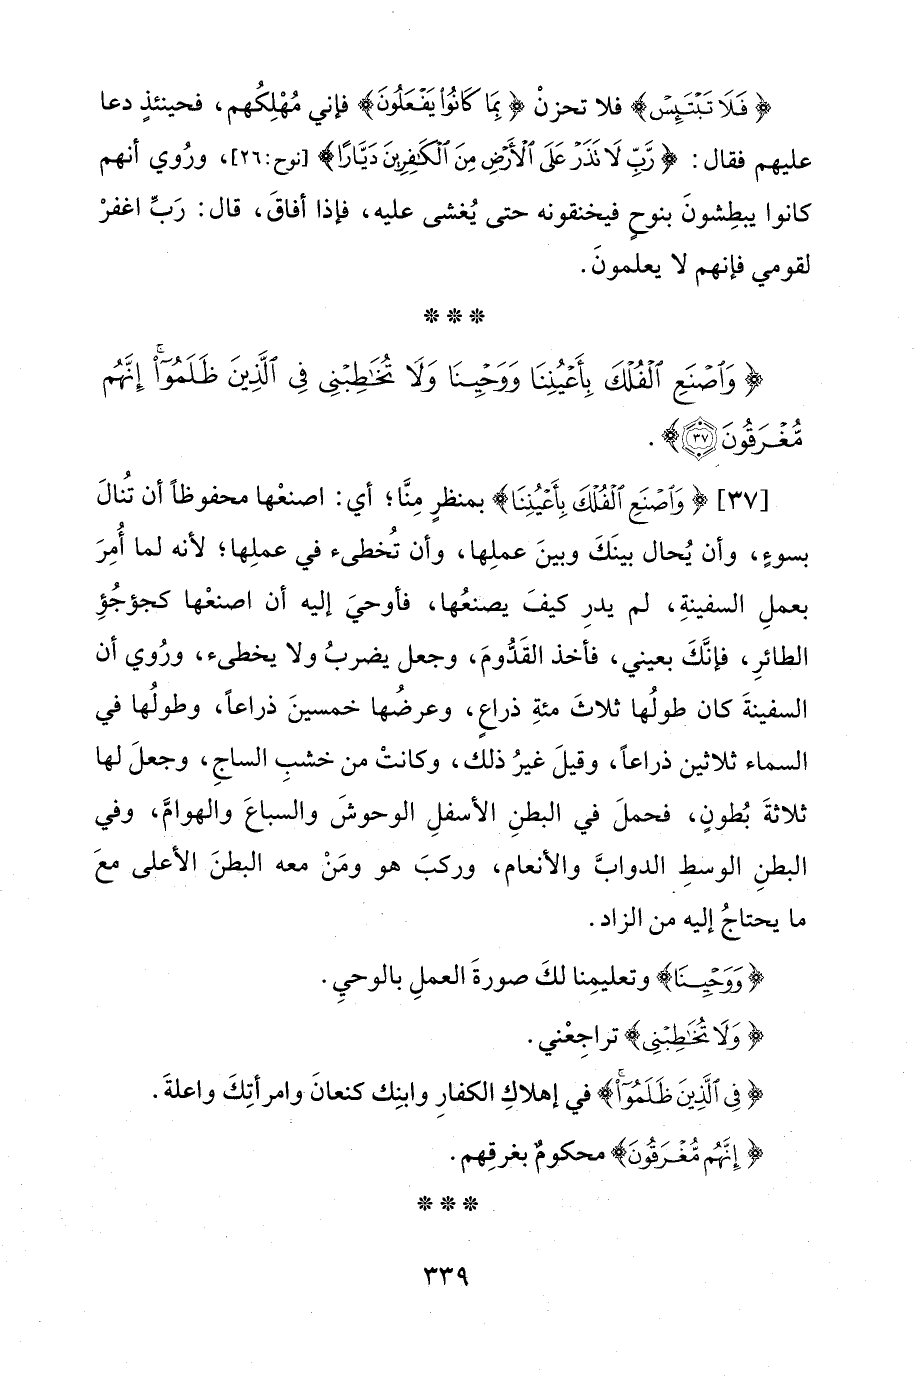 ﴿ فَلَا تَبْتَئِسْ﴾ فلا تحزنْ ﴿ بِمَا كَانُوا۟ يَفْعَلُونَ﴾ فإني مُهْلِكُهم، فحينئذٍ دعا
عليهم فقال: ﴿ رَّبِّ لَا تَذَرْ عَلَى ٱلْأَرْضِ مِنَ ٱلْكَٰفِرِينَ دَيَّارًا﴾ [نوح: ٢٦]، ورُوي أنهم
كانوا يبطِشونَ بنوحٍ فيخنقونه حتى يُغشى عليه، فإذا أفاقَ، قال: رَبِّ اغفرْ
لقومي فإنهم لا يعلمونَ.
* * *
﴿ وَٱصْنَعِ ٱلْفُلْكَ بِأَعْيُنِنَا وَوَحْيِنَا وَلَا تُخَٰطِبْنِى فِى ٱلَّذِينَ ظَلَمُوٓا۟ۚ إِنَّهُم
مُّغْرَقُونَ ٣٧﴾.
[٣٧] ﴿ وَٱصْنَعِ ٱلْفُلْكَ بِأَعْيُنِنَا﴾ بمنظرٍ مِنَّا؛ أي: اصنعْها محفوظاً أن تُنالَ
بسوءٍ، وأن يُحال بينَكَ وبينَ عملِها، وأن تُخطىء في عملِها؛ لأنه لما أُمِرَ
بعملِ السفينةِ، لم يدرِ كيفَ يصنعُها، فأوحيَ إليه أن اصنعْها كجؤجُؤِ
الطائرِ، فإنَّكَ بعيني، فأخذ القَدُّومَ، وجعل يضربُ ولا يخطىء، ورُوي أن
السفينةَ كان طولُها ثلاثَ مئةِ ذراعٍ، وعرضُها خمسينَ ذراعاً، وطولُها في
السماء ثلاثين ذراعاً، وقيلَ غيرُ ذلك، وكانتْ من خشبِ الساجِ، وجعلَ لها
ثلاثةَ بُطونٍ، فحملَ في البطنِ الأسفلِ الوحوشَ والسباعَ والهوامَّ، وفي
البطنِ الوسطِ الدوابَّ والأنعام، وركبَ هو ومَنْ معه البطنَ الأعلى معَ
ما يحتاجُ إليه من الزاد.
﴿ وَوَحْيِنَا﴾ وتعليمِنا لكَ صورةَ العملِ بالوحيِ.
﴿ وَلَا تُخَٰطِبْنِى﴾ تراجِعْني.
﴿ فِى ٱلَّذِينَ ظَلَمُوٓا۟ۚ﴾ في إهلاكِ الكفارِ وابنِك كنعانَ وامرأتِكَ واعلةَ.
﴿ إِنَّهُم مُّغْرَقُونَ﴾ محكومٌ بغرقِهم.
* * *
٣٣٩